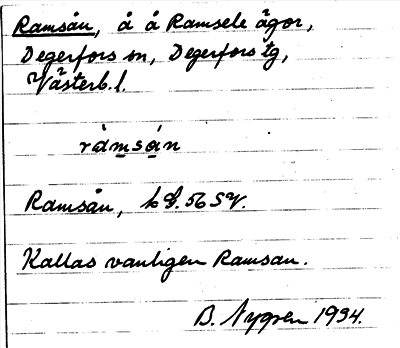 Ramsån, å å Ramsele ägor,
Degerfors sn, Degerfors tg,
Västerb. l.
ràmsán
Ramsån, bl. 56 SV.
Kallas vanligen Ramsan.
B. Nygren 1934.